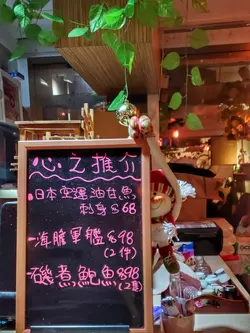 心之推介
·日本空運油甘魚
刺身 $68
-海膽軍艦 $98
(2件)
-磯煮鮑魚 $98